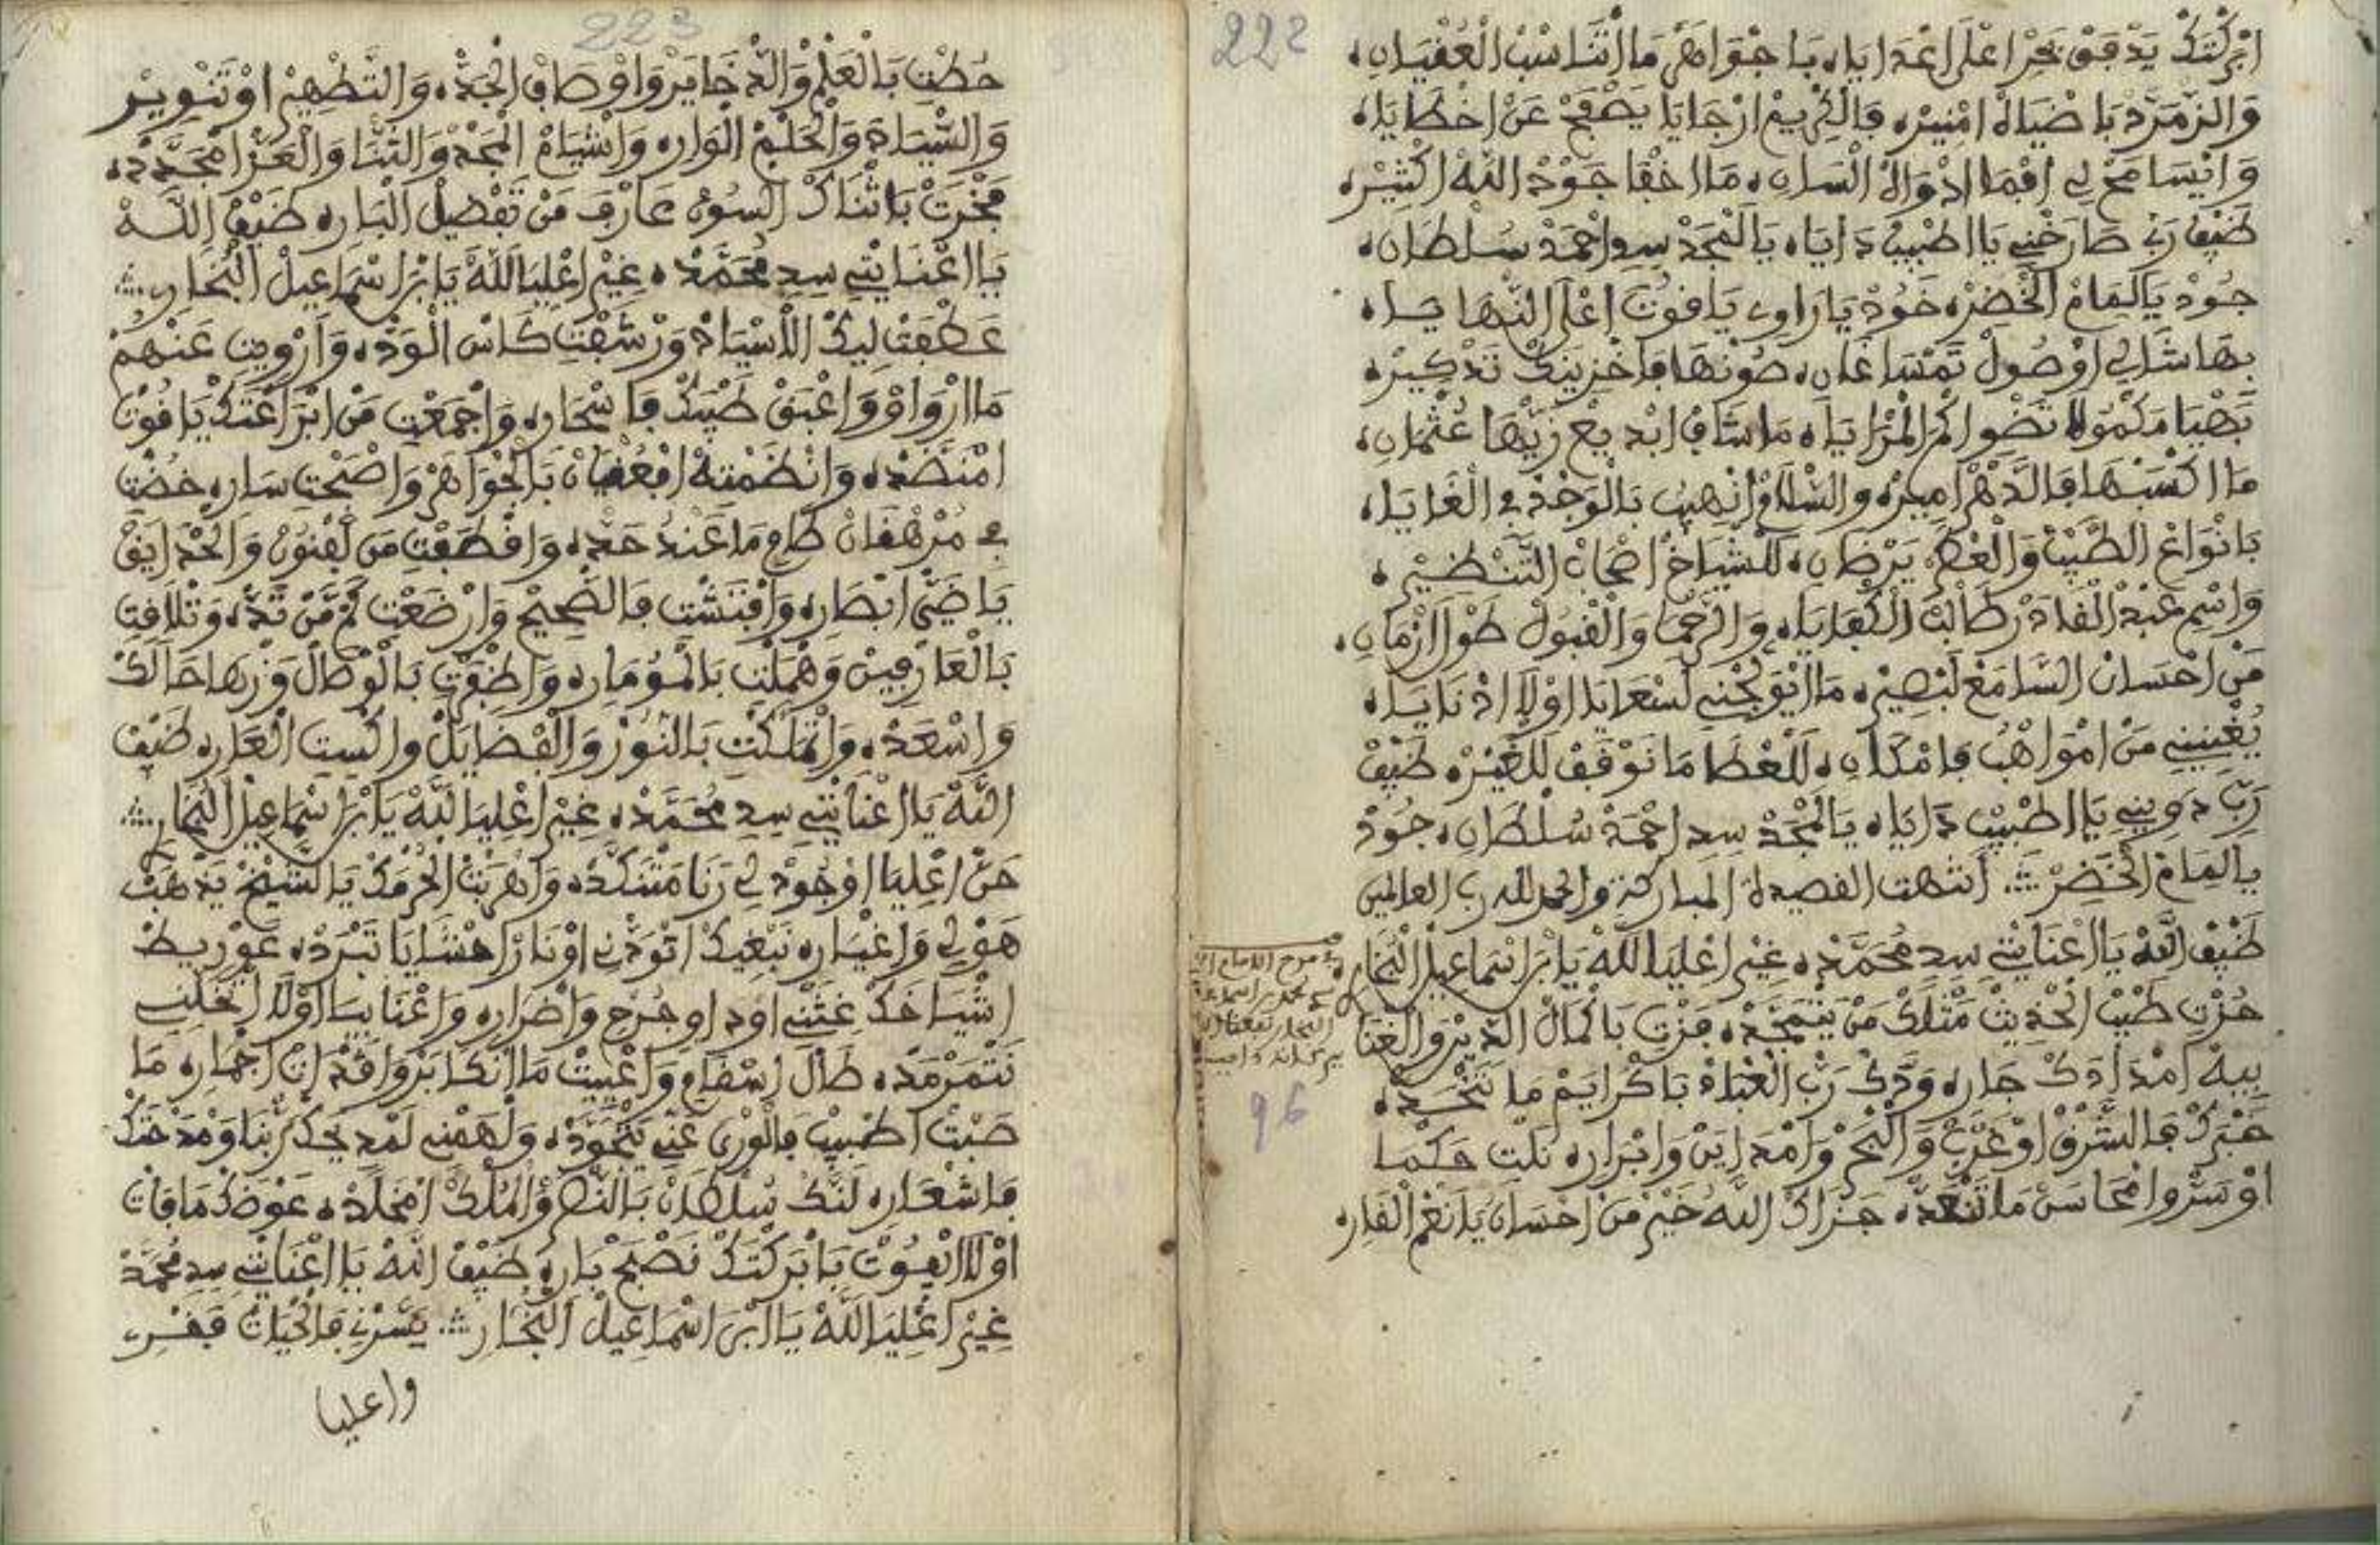 222
ابْرَكْتَكْ يَدْفَقْ بَحْرِ اعْلَى اعْدَايَاه بَاجْوَاهَرْ مَا اتْنَاسَبْ الْعُقْيَانِ،
وَالزُّمَرَّدْ بَاضْيَاهْ امْنِيرْه فَالْكْرِيمْ ارْجَايَا يَصْفَحْ عَنْ اخْطَايَاه
وَايْسَامَحْ لِي افْمَا ادْوَاهْ الْسَانِ، مَا اخْفَا جُودْ اللَّهْ اكْثِيرْه
ضَيْفْ رَبِّ صَارَخْنِي يَا اطْبِيبْ دَايَاه يَا لَمْجَدْ سِدِ احْمَدْ سُلْطَانِ،
جُودْ يَا لِمَامْ الْخَضِرْه خُودْ يَا رَاوِي يَاقُوتْ اعْلَى النّْهَايَا،
بِهَا شَالِي اوْصُولْ تَمْسَا غَانِ، صُونْهَا فَاخْزِينَكْ تَذْكِيرْه
بَهْيَا مَكْمُولَا تَضْوِ الْمْزَايَاه مَا شَافْ ابْدِيعْ زِينْهَا عُثْمَانِ،
مَا اكْسَبْهَا فَالدَّهْرْ امِيرْه وَالسّْلَامْ انْهِيبُ بَالْوَجْدْ فِ الْغَايَا،
بَانْوَاعْ الطِّيبْ وَالْعْطَرْ يَرْضَانِ، لَلْشْيَاخْ اصْحَابْ التَّنْظِيرْه
وَاسْمِ عَبْدْ الْقَادَرْ طَالَبْ الْكْفَايَاه وَالرَّحْمَا وَالْقْبُولْ طُولْ ازْمَانِ،
مَنْ احْسَانْ السَّامَعْ لَبْصِيرْه مَا انْيُوَلْجْنِي لَسْعَايَا اوْلَا ادْنَايَا،
يُغْنِينِي مَنْ امْوَاهْبُ فَامْكَانِ، لَلْعْطَا مَا نَوْقَفْ لَلْغَيْرْه ضَيْفْ
رَبِّ دَوِينِي يَا اطْبِيبْ دَايَاه يَا لَمْجَدْ سِدِ احْمَدْ سُلْطَانِ، جُودْ
يَا لِمَامْ الْخَضِرْ انتهت القصيدة المباركة والحمد لله رب العالمين
ضَيْفْ اللَّهْ يَا اعْنَايْتِي سِدِ مُحَمَّدْه غِيرْ اعْلِيَا اللَّهْ يَا ابْرَ اسْمَاعِيلْ الْبُخَارِ،
حُزْتِ طِيبْ الْحْدِيثْ مَثْلَكْ مَنْ يَتْمَجَّدْه فَزْتِ بَاكْمَالْ الدِّينْ وَالْغْنَا
بِيهْ امْدَادَكْ جَارِه وَدَّكْ رَبّْ الْعْبَادْ بَاكْرَايَمْ مَا تَنْحَسَدْه
خَبْرَكْ فَالشَّرْقْ اوْ غَرْبْ وَالْبْحَرْ وَامْدَايَنْ وَابْرَارِه نَلْتِ حَكْمَا
اوْ سَرّْ وَامْحَاسَنْ مَا تَنْعَدّْه جَزَاكْ اللَّهْ خَيْرْ مَنْ احْسَانُ يَا نَعْمْ الْقَارِه
96
223
حُطْتِ بَالْعَلْمْ وَالذّْخَايَرْ وَاوْصَافْ الْجَدّْه وَالتَّطْهِيرْ اوْ تَنْوِيرْ
وَالسِّيَادَ وَالْحَلْمْ الْوَارِه وَانْشْيَامْ الْمَجْدْ وَالثّْنَا وَالْعَزّْ امْجَدَّدْه
فَخْرَتْ بَاثْنَاكْ السُّوسْ عَارَفْ مَنْ تَفْضِيلْ الْبَارِه ضَيْفْ اللَّهْ
يَا اعْنَايْتِي سِدِ مُحَمَّدْه غِيرْ اعْلِيَا اللَّهْ يَا ابْرَ اسْمَاعِيلْ الْبُخَارِ
عَطْفَتْ لِيكْ الْاسْيَادْ وَرْشَفْتِ كَاسْ الْوَدّْه وَارْوِيتِ عَنْهُمْ
مَا ارْوَاوْ وَاعْبَقْ طِيبَكْ فَاسْحَارِه وَاجْمَعْتِ مَنْ ابْرَاعْتَكْ يَاقُوتْ
امْنَضَّدْه وَانْظَمْتِهْ افْعُقْيَانْ بَالْجْوَاهَرْ وَاصْبَحْتِ سَارِه خُضْتِ
فِ مُرْهَفَانْ طَامِ مَا عَنْدُ حَدّْه وَاقْطَفْتِ مَنْ لَفْنُونْ وَالْحْدَايَقْ
يَا ضَيّْ ابْصَارِه وَافْتَشْتِ فَالصّْحِيحْ وَارْضَعْتِ ثَمَّنْ ثَدّْه وَتْلَاقِتِ
بَالْعَارْفِينْ وَهْمَلْتِ بَالْمُومَارِه وَاظْفَرْتِ بَالْوْصَالْ وَزْهَا حَالَكْ
وَاسْعَدْه وَاتْمَلَّكْتِ بَالنُّورْ وَالْفْضَايَلْ وَاكْسِيتِ الْعَارِه ضَيْفْ
اللَّهْ يَا اعْنَايْتِي سِدِ مُحَمَّدْه غِيرْ اعْلِيَا اللَّهْ يَا ابْرَ اسْمَاعِيلْ الْبُخَارِ
حَنّْ اعْلِيَا اوْجُودْ لِي رَنَا مَتْنَكَّدْه وَاهْرَبْتْ الْحُرْمَكْ يَا الشِّيخْ يَذْهَبْ
هَوْلِي وَاغْيَارِه نَبْغِيكْ اتْوَدْنِي اوْ نَارْ احْشَايَا تَبْرَدْه عَوْرِيطْ
اشْيَاخَكْ غِثْنِي اوْدَاوِ جُرْحِ وَاضْرَارِه وَاعْنَا بِيَا اوْلَا اتْخَلِّينِي
نَتْمَرْمَدْه طَالْ اسْقَامِ وَاعْيِيتْ مَا انْكَابَرْ وَاقْدَاتْ اجْمَارِه مَا
صَبْتْ اطْبِيبْ فَالْوْرَى عَنِّي يَتْجَوَّدْه وَلْهَمْنِي لَمْدِيحَكْ رَبْنَا وَمْدَحْتَكْ
فَاشْعَارِه لَنَّكْ سُلْطَانْ بَالنّْصَرْ وُالْمُلْكْ امْخَلَّدْه عَوْضَكْ مَا فَاتْ
اوْلَا ايْفُوتْ بَابْرَكْتَكْ نَصْبَحْ بَارِه ضَيْفْ اللَّهْ يَا اعْنَايْتِي سِدِ مُحَمَّدْ
غِيرْ اعْلِيَا اللَّهْ يَا ابْرَ اسْمَاعِيلْ الْبُخَارِ يَسَّرْنِي فَالْحْيَاتْ قَفْرِي
واعليا